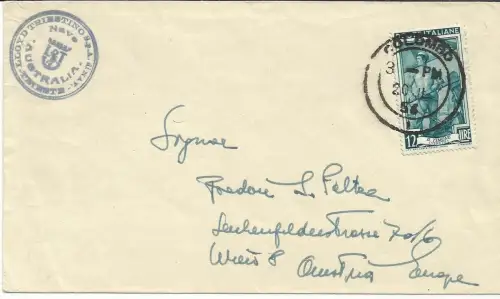 LLOYD TRIESTINO S.p.A. di NAV.
Nave
AUSTRALIA
TRIESTE
COLOMBO
3 - PM
20
54
ITALIANE
12 LIRE
Signor
Lerchenfelderstrasse 70/6
Wien 8 Austria Europe